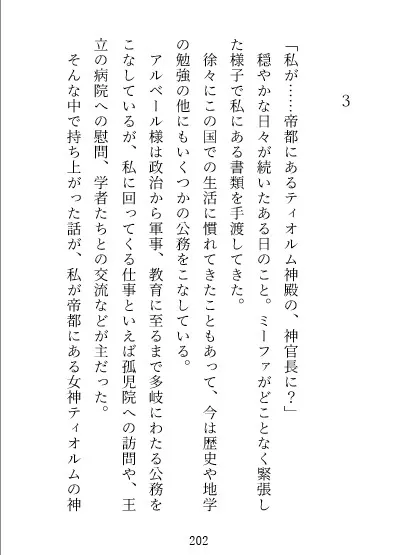 3
「私が……帝都にあるティオルム神殿の、神官長に？」
穏やかな日々が続いたある日のこと。ミーファがどことなく緊張し
た様子で私にある書類を手渡してきた。
徐々にこの国での生活に慣れてきたこともあって、今は歴史や地学
の勉強の他にもいくつかの公務をこなしている。
アルベール様は政治から軍事、教育に至るまで多岐にわたる公務を
こなしているが、私に回ってくる仕事といえば孤児院への訪問や、王
立の病院への慰問、学者たちとの交流などが主だった。
そんな中で持ち上がった話が、私が帝都にある女神ティオルムの神
202